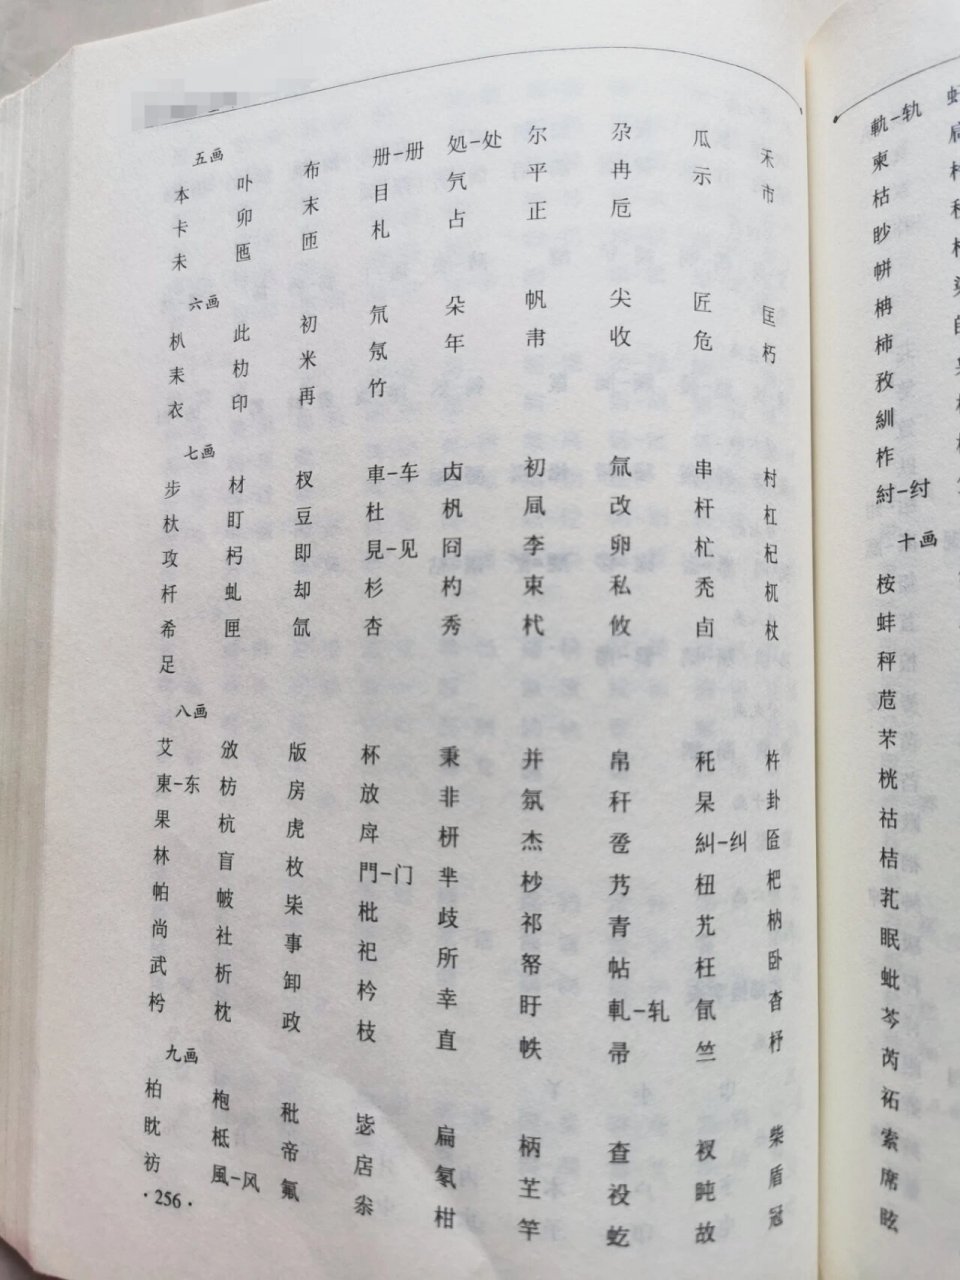 五画
本 卟 布 册-册 処-处 尔 尕 瓜 禾
卡 卯 末 目 氕 平 冉 示 市
未 匜 匝 札 占 正 卮
六画
朳 此 初 氘 朵 帆 尖 匠 匡
耒 朸 米 氖 年 帇 收 危 朽
衣 印 再 竹
七画
步 材 杈 車-车 卤 初 氚 串 村
杕 盯 豆 杜 杋 凬 改 杆 杠
攻 杩 即 見-见 囧 李 卵 杧 杞
杄 虬 却 杉 杓 束 私 秃 杌
希 匣 氙 杏 秀 杙 攸 卣 杖
足
八画
艾 攽 版 杯 秉 并 帛 秅 杵
東-东 枋 房 放 非 氛 秆 杲 卦
果 杭 虎 戽 枅 杰 卺 糾-纠
林 盲 枚 門-门 芈 杪 艿 杻 杷
帕 帔 枈 枇 歧 祁 青 艽 枘
尚 社 事 祀 所 帑 帖 枉 卧
武 析 卸 枔 幸 盱 軋-轧 氤 杳
枍 枕 政 枝 直 帙 帚 竺 杼
九画
柏 枹 秕 毖 扁 柄 查 衩 柴
眈 柢 帝 扂 氡 芏 祋 盹 盾
祊 風-风 氟 枀 柑 竿 虼 故 冠
·256·
軌-轨
柬
枯
眇
帡
柟
柿
孜
紃
柞
紂-纣
十画
桉
蚌
秤
茋
芣
桄
祜
桔
芤
眠
蚍
芩
芮
祏
索
席
眩